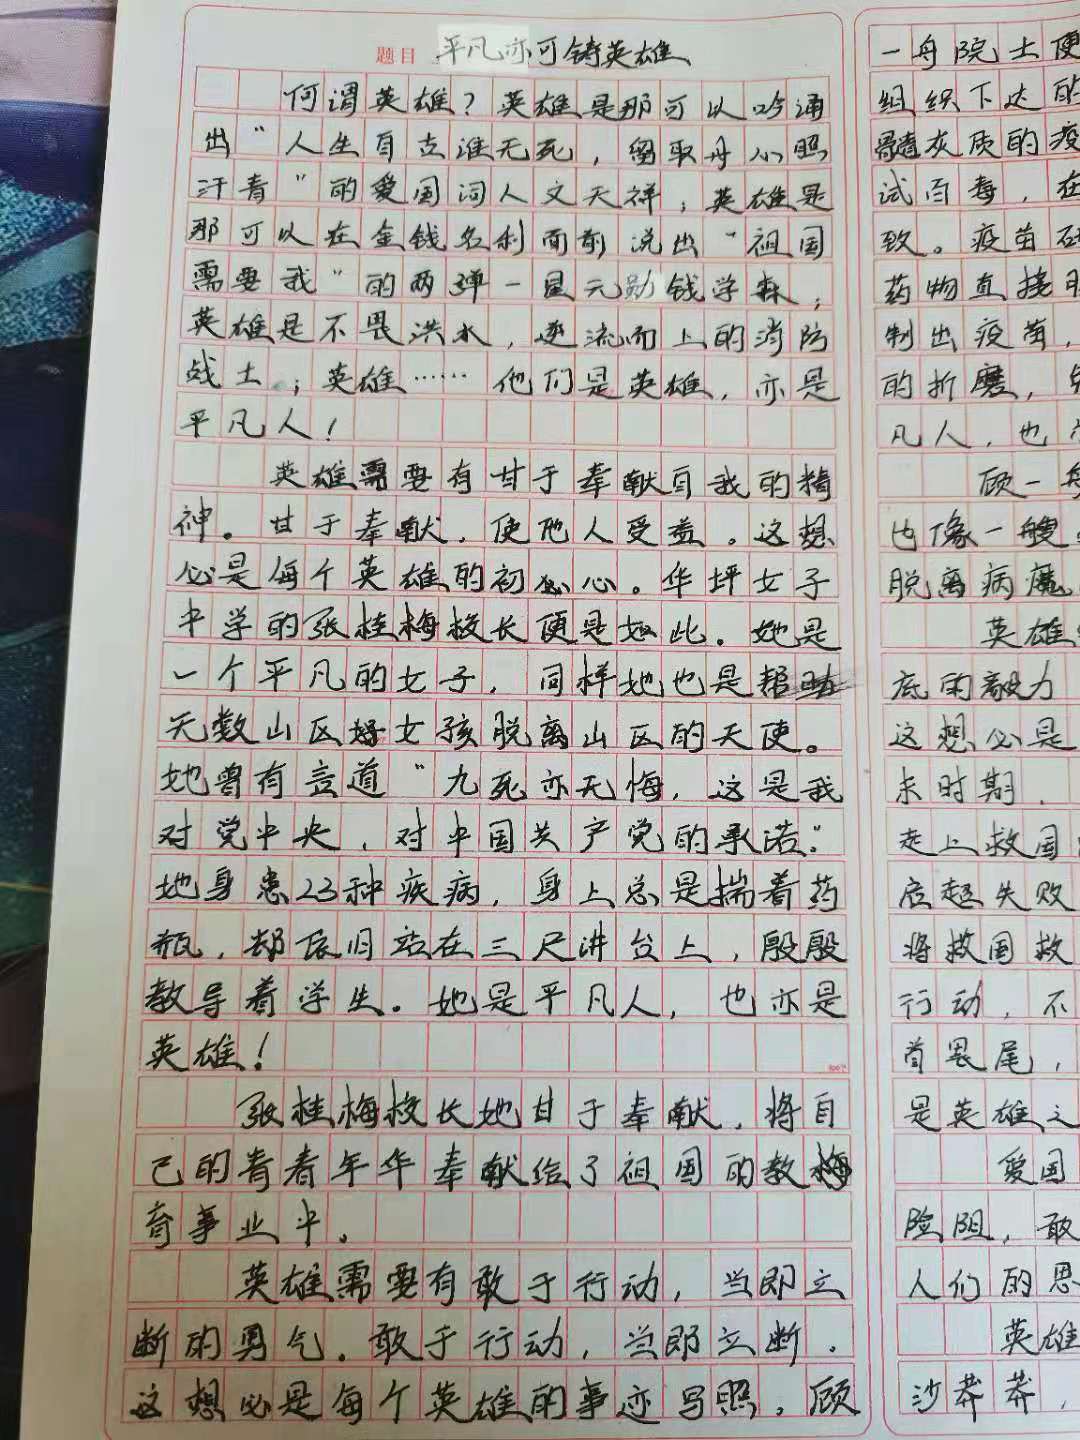 题目 平凡亦可铸英雄
何谓英雄？英雄是那可以吟诵
出“人生自古谁无死，留取丹心照
汗青”的爱国词人文天祥；英雄是
那可以在金钱名利面前说出“祖国
需要我”的两弹一星元勋钱学森；
英雄是不畏洪水，逆流而上的消防
战士；英雄……他们是英雄，亦是
平凡人！
英雄需要有甘于奉献自我的精
神。甘于奉献，使他人受益。这想
必是每个英雄的初心。华坪女子
中学的张桂梅校长便是如此。她是
一个平凡的女子，同样她也是帮助
无数山区女孩脱离山区的天使。
她曾有言道“九死亦无悔，这是我
对党中央，对中国共产党的承诺”
她身患23种疾病，身上总是揣着药
瓶，却依旧站在三尺讲台上，殷殷
教导着学生。她是平凡人，也亦是
英雄！
张桂梅校长她甘于奉献，将自
己的青春年华奉献给了祖国的教
育事业中。
英雄需要有敢于行动，当即立
断的勇气。敢于行动，当即立断。
这想必是每个英雄的事迹写照。顾
一舟院士便
组织下达的
髓灰质的疫
试百毒，在
致。疫苗研
药物直接
制出疫苗，
的折磨，
凡人，也
顾一舟
也像一艘
脱离病魔
英雄
底的毅力
这想必是
末时期，
走上救国
启超失败
将救国救
行动，不
首畏尾，
是英雄之
爱国
险阻，敢
人们的思
英雄
沙莽莽，